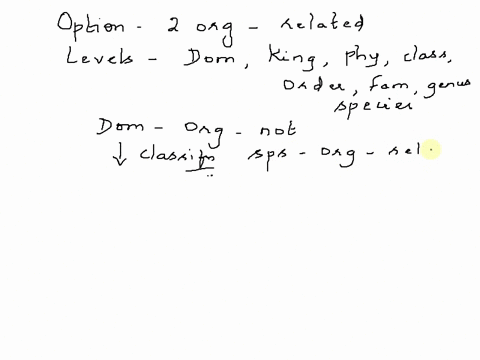 Option - 2 org - related
Levels - Dom, King, phy, class,
order, fam, genus
species
Dom - org - not
↓ classifn sps - org - rel